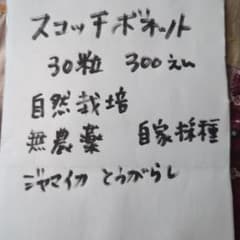 スコッチボネット
30粒 300えん
自然栽培
無農薬 自家採種
ジャマイカ とうがらし